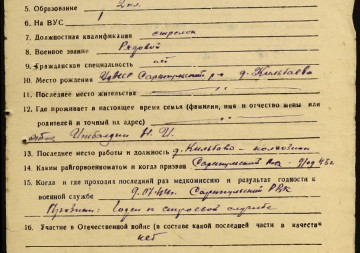 5. Образование 2 кл.
6. На ВУС
7. Должностная квалификация стрелок
8. Военное звание Рядовой
9. Гражданская специальность нет
10. Место рождения УдАССР Сарапульский р-н д.
11. Последнее место жительства — „ —
12. Где проживает в настоящее время семья (фамилия, имя и отчество жены или
родителей и точный их адрес) — „ —
Н. И.
13. Последнее место работы и должность д. колхозник
14. Каким райгорвоенкоматом и когда призван Сарапульский
15. Когда и где проходил последний раз медкомиссию и результат годности к
военной службе Сарапульский РВК
Признан: Годен к строевой службе
16. Участие в Отечественной войне (в составе какой последней части в качестве
нет